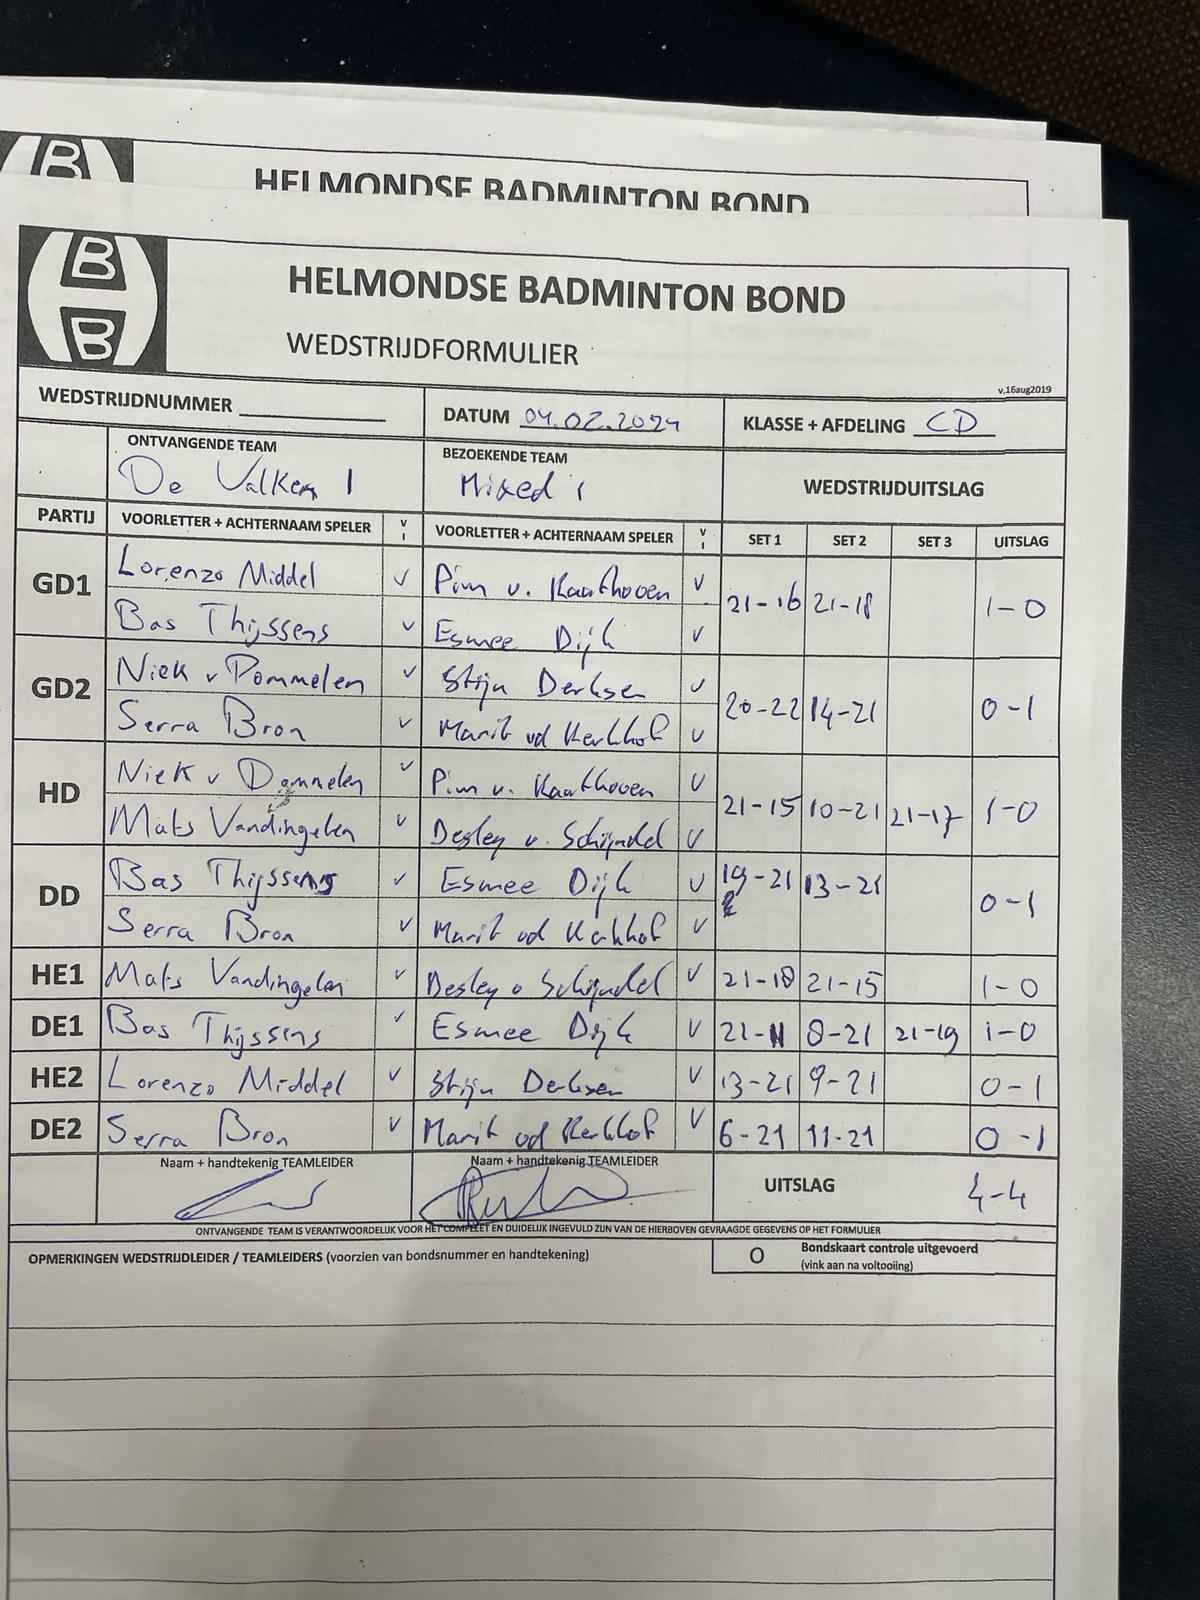 HELMONDSE BADMINTON BOND
HELMONDSE BADMINTON BOND
WEDSTRIJDFORMULIER
v.16aug2019
WEDSTRIJDNUMMER DATUM 04.02.2024 KLASSE + AFDELING CD
ONTVANGENDE TEAM BEZOEKENDE TEAM WEDSTRIJDUITSLAG
De Valken 1 Mixed 1
PARTIJ VOORLETTER + ACHTERNAAM SPELER V I VOORLETTER + ACHTERNAAM SPELER V I SET 1 SET 2 SET 3 UITSLAG
GD1 Lorenzo Middel v Pim v. Kaathoven v 21-16 21-18 1-0
Bas Thijssens v Esmee Dijk v
GD2 Niek v Dommelen v Stijn Derksen v 20-22 14-21 0-1
Serra Bron v Marit vd Kerkhof v
HD Niek v Dommelen v Pim v. Kaathoven v 21-15 10-21 21-17 1-0
Mats Vandingelen v Desley v. Schijndel v
DD Bas Thijssens v Esmee Dijk v 19-21 13-21 0-1
Serra Bron v Marit vd Kerkhof v
HE1 Mats Vandingelen v Desley v Schijndel v 21-18 21-15 1-0
DE1 Bas Thijssens v Esmee Dijk v 21-11 8-21 21-19 1-0
HE2 Lorenzo Middel v Stijn Derksen v 13-21 9-21 0-1
DE2 Serra Bron v Marit vd Kerkhof v 6-21 11-21 0-1
Naam + handtekenig TEAMLEIDER Naam + handtekenig TEAMLEIDER UITSLAG 4-4
ONTVANGENDE TEAM IS VERANTWOORDELIJK VOOR HET COMPLEET EN DUIDELIJK INGEVULD ZIJN VAN DE HIERBOVEN GEVRAAGDE GEGEVENS OP HET FORMULIER
OPMERKINGEN WEDSTRIJDLEIDER / TEAMLEIDERS (voorzien van bondsnummer en handtekening) O Bondskaart controle uitgevoerd
(vink aan na voltooiing)